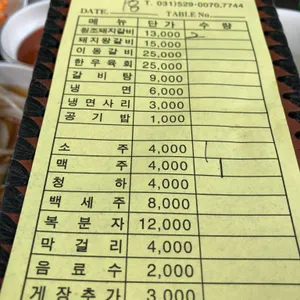 T. 031)529-0070,7744
DATE. 18 TABLE No.
메 뉴 단 가 수 량
원조돼지갈비 13,000 2
돼지왕갈비 15,000
이동갈비 25,000
한우육회 25,000
갈비탕 9,000
냉면 6,000
냉면사리 3,000
공기밥 1,000
소주 4,000 1
맥주 4,000 1
청하 4,000
백세주 8,000
복분자 12,000
막걸리 4,000
음료수 2,000
게장추가 3,000